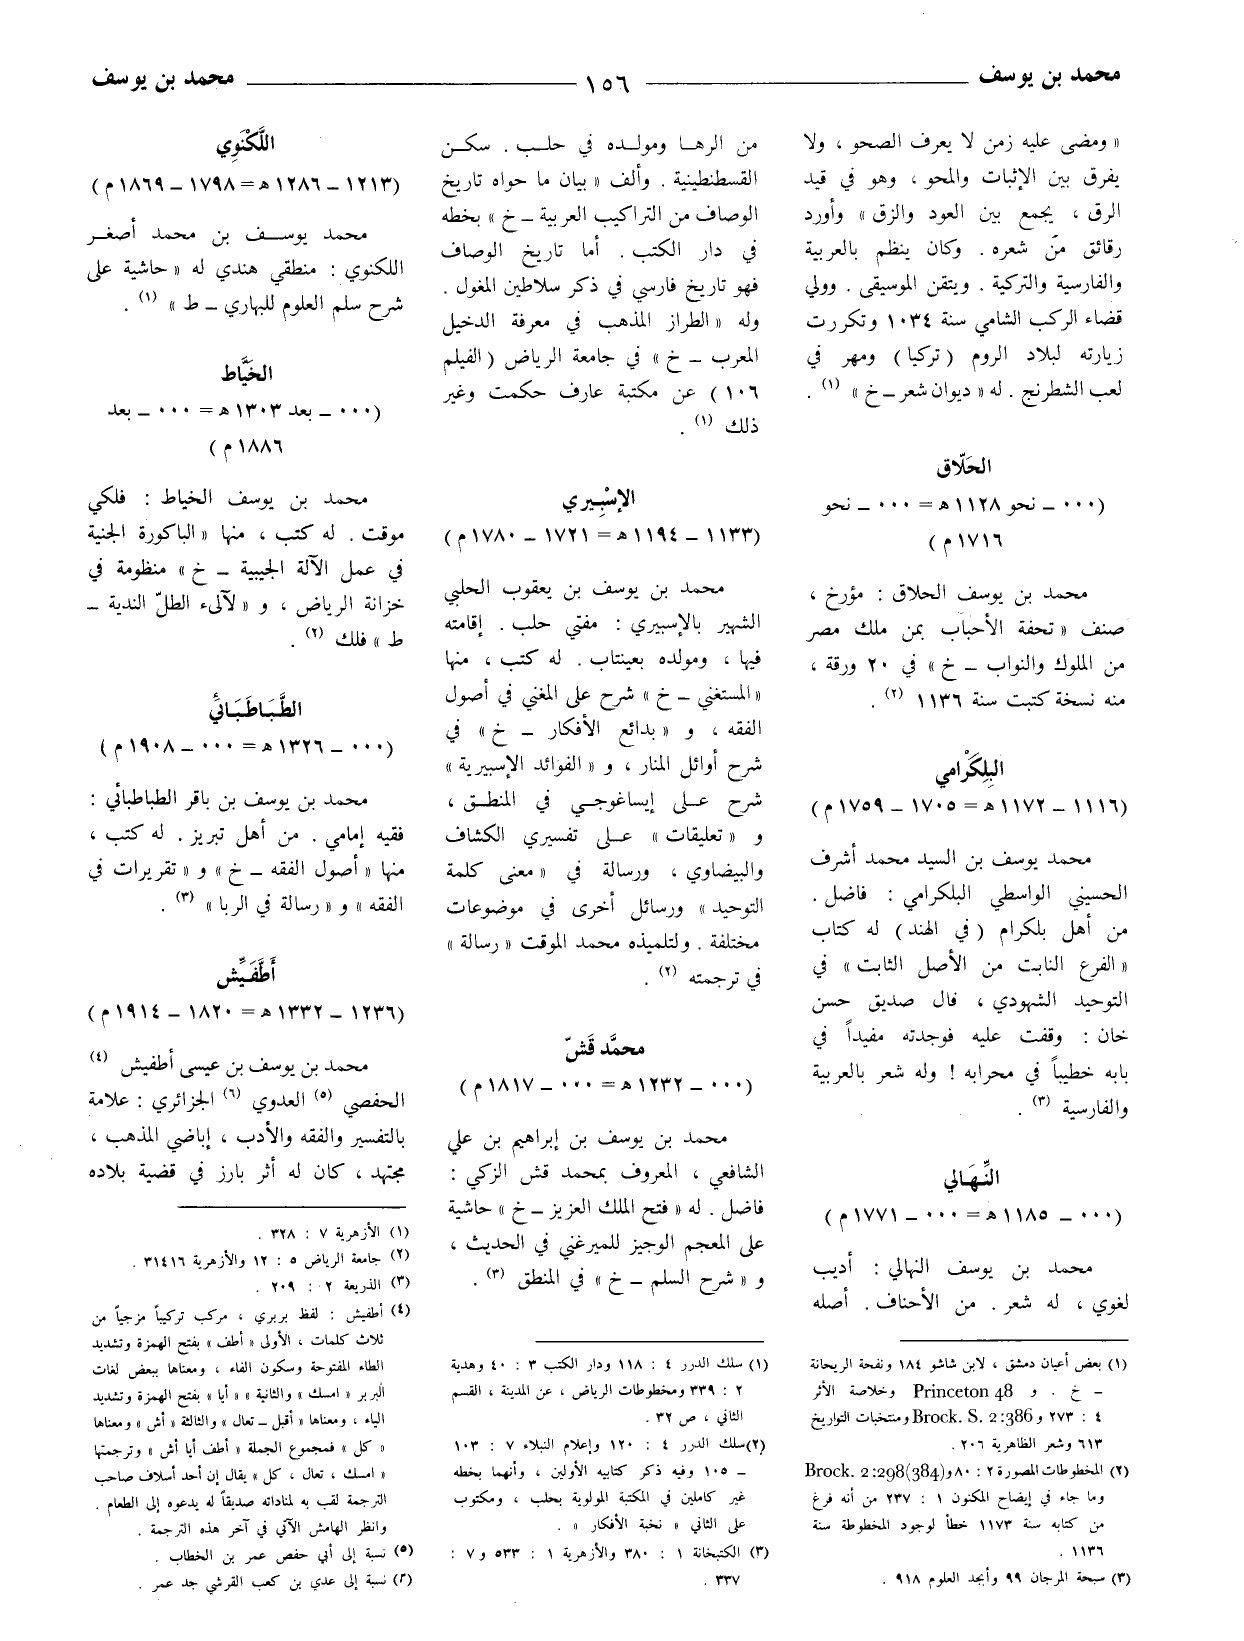 محمد بن يوسف ـــــ ١٥٦ ـــــ محمد بن يوسف
« ومضى عليه زمن لا يعرف الصحو ، ولا
يفرق بين الإثبات والمحو ، وهو في قيد
الرق ، يجمع بين العود والزق » وأورد
رقائق من شعره . وكان ينظم بالعربية
والفارسية والتركية . ويتقن الموسيقى . وولي
قضاء الركب الشامي سنة ١٠٣٤ وتكررت
زيارته لبلاد الروم ( تركيا ) ومهر في
لعب الشطرنج . له « ديوان شعر ـ خ » (١) .
الحَلّاق
(٠٠٠ ـ نحو ١١٢٨ ه = ٠٠٠ ـ نحو
١٧١٦ م )
محمد بن يوسف الحلاق : مؤرخ ،
صنف « تحفة الأحباب بمن ملك مصر
من الملوك والنواب ـ خ » في ٢٠ ورقة ،
منه نسخة كتبت سنة ١١٣٦ (٢) .
البِلكَرامي
(١١١٦ ـ ١١٧٢ ه = ١٧٠٥ ـ ١٧٥٩ م )
محمد يوسف بن السيد محمد أشرف
الحسيني الواسطي البلكرامي : فاضل .
من أهل بلكرام ( في الهند ) له كتاب
« الفرع النابت من الأصل الثابت » في
التوحيد الشهودي ، قال صديق حسن
خان : وقفت عليه فوجدته مفيداً في
بابه خطيباً في محرابه ! وله شعر بالعربية
والفارسية (٣) .
النِّهَالي
(٠٠٠ ـ ١١٨٥ ه = ٠٠٠ ـ ١٧٧١ م )
محمد بن يوسف النهالي : أديب
لغوي ، له شعر . من الأحناف . أصله
(١) بعض أعيان دمشق ، لابن شاشو ١٨٤ ونفحة الريحانة
ـ خ . و Princeton 48 وخلاصة الأثر
٤ : ٢٧٣ و Brock. S. 2:386 ومنتخبات التواريخ
٦١٣ وشعر الظاهرية ٢٠٦ .
(٢) المخطوطات المصورة ٢ : ٨٠ و Brock. 2:298(384)
وما جاء في إيضاح المكنون ١ : ٢٣٧ من أنه فرغ
من كتابه سنة ١١٧٣ خطأ لوجود المخطوطة سنة
١١٣٦ .
(٣) سبحة المرجان ٩٩ وأبجد العلوم ٩١٨ .
من الرها ومولده في حلب . سكن
القسطنطينية . وألف « بيان ما حواه تاريخ
الوصاف من التراكيب العربية ـ خ » بخطه
في دار الكتب . أما تاريخ الوصاف
فهو تاريخ فارسي في ذكر سلاطين المغول .
وله « الطراز المذهب في معرفة الدخيل
المعرب ـ خ » في جامعة الرياض ( الفيلم
١٠٦ ) عن مكتبة عارف حكمت وغير
ذلك (١) .
الإسْبِيري
(١١٣٣ ـ ١١٩٤ ه = ١٧٢١ ـ ١٧٨٠ م )
محمد بن يوسف بن يعقوب الحلبي
الشهير بالإسبيري : مفتي حلب . إقامته
فيها ، ومولده بعينتاب . له كتب ، منها
« المستغني ـ خ » شرح على المغني في أصول
الفقه ، و « بدائع الأفكار ـ خ » في
شرح أوائل المنار ، و « الفوائد الإسبيرية »
شرح على إيساغوجي في المنطق ،
و « تعليقات » على تفسيري الكشاف
والبيضاوي ، ورسالة في « معنى كلمة
التوحيد » ورسائل أخرى في موضوعات
مختلفة . ولتلميذه محمد الموقت « رسالة »
في ترجمته (٢) .
محمَّد قَشّ
(٠٠٠ ـ ١٢٣٢ ه = ٠٠٠ ـ ١٨١٧ م )
محمد بن يوسف بن إبراهيم بن علي
الشافعي ، المعروف بمحمد قش الزكي :
فاضل . له « فتح الملك العزيز ـ خ » حاشية
على المعجم الوجيز للميرغني في الحديث ،
و « شرح السلم ـ خ » في المنطق (٣) .
(١) سلك الدرر ٤ : ١١٨ ودار الكتب ٣ : ٤٠ وهدية
٢ : ٣٣٩ ومخطوطات الرياض ، عن المدينة ، القسم
الثاني ، ص ٣٢ .
(٢) سلك الدرر ٤ : ١٢٠ وإعلام النبلاء ٧ : ١٠٣
ـ ١٠٥ وفيه ذكر كتابيه الأولين ، وأنهما بخطه
غير كاملين في المكتبة المولوية بحلب ، ومكتوب
على الثاني « نخبة الأفكار » .
(٣) الكتبخانة ١ : ٣٨٠ والأزهرية ١ : ٥٣٣ و ٧ :
٣٣٧ .
اللَّكْنَوِي
(١٢١٣ ـ ١٢٨٦ ه = ١٧٩٨ ـ ١٨٦٩ م )
محمد يوسف بن محمد أصغر
اللكنوي : منطقي هندي له « حاشية على
شرح سلم العلوم للبهاري ـ ط » (١) .
الخَيَّاط
(٠٠٠ ـ بعد ١٣٠٣ ه = ٠٠٠ ـ بعد
١٨٨٦ م )
محمد بن يوسف الخياط : فلكي
موقت . له كتب ، منها « الباكورة الجنية
في عمل الآلة الجيبية ـ خ » منظومة في
خزانة الرياض ، و « لآلىء الطلّ الندية ـ
ط » فلك (٢) .
الطَّبَاطَبَائي
(٠٠٠ ـ ١٣٢٦ ه = ٠٠٠ ـ ١٩٠٨ م )
محمد بن يوسف بن باقر الطباطبائي :
فقيه إمامي . من أهل تبريز . له كتب ،
منها « أصول الفقه ـ خ » و « تقريرات في
الفقه » و « رسالة في الربا » (٣) .
أَطَّفَيِّش
(١٢٣٦ ـ ١٣٣٢ ه = ١٨٢٠ ـ ١٩١٤ م )
محمد بن يوسف بن عيسى أطفيش (٤)
الحفصي (٥) العدوي (٦) الجزائري : علامة
بالتفسير والفقه والأدب ، إباضي المذهب ،
مجتهد ، كان له أثر بارز في قضية بلاده
(١) الأزهرية ٧ : ٣٢٨ .
(٢) جامعة الرياض ٥ : ١٢ والأزهرية ٣١٤١٦ .
(٣) الذريعة ٢ : ٢٠٩ .
(٤) أطفيش : لفظ بربري ، مركب تركيباً مزجياً من
ثلاث كلمات ، الأولى « أطف » بفتح الهمزة وتشديد
الطاء المفتوحة وسكون الفاء ، ومعناها ببعض لغات
البربر « امسك » والثانية « أيا » بفتح الهمزة وتشديد
الياء ، ومعناها « أقبل ـ تعال » والثالثة « أش » ومعناها
« كل » فمجموع الجملة « أطف أيا أش » وترجمتها
« امسك ، تعال ، كل » يقال إن أحد أسلاف صاحب
الترجمة لقب به لمناداته صديقاً له يدعوه إلى الطعام .
وانظر الهامش الآتي في آخر هذه الترجمة .
(٥) نسبة إلى أبي حفص عمر بن الخطاب .
(٦) نسبة إلى عدي بن كعب القرشي جد عمر .